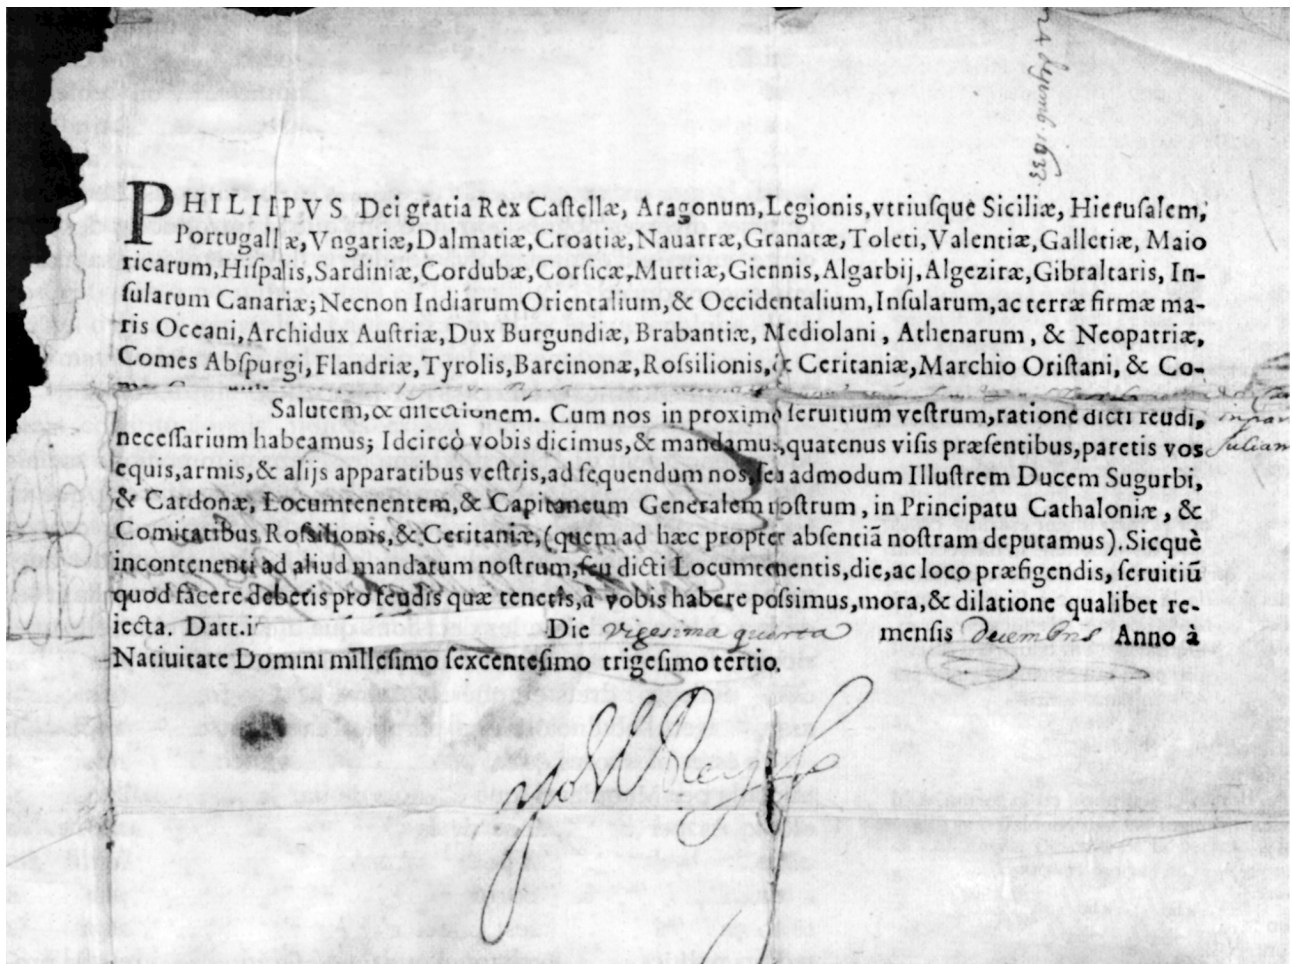 decemb. 1633
PHILIIPVS Dei gratia Rex Castellæ, Aragonum, Legionis, vtriusque Siciliæ, Hierusalem,
Portugallæ, Vngariæ, Dalmatiæ, Croatiæ, Nauarræ, Granatæ, Toleti, Valentiæ, Galletiæ, Maio
ricarum, Hispalis, Sardiniæ, Cordubæ, Corsicæ, Murtiæ, Giennis, Algarbij, Algeziræ, Gibraltaris, In-
sularum Canariæ; Necnon Indiarum Orientalium, & Occidentalium, Insularum, ac terræ firmæ ma-
ris Oceani, Archidux Austriæ, Dux Burgundiæ, Brabantiæ, Mediolani, Athenarum, & Neopatriæ,
Comes Abspurgi, Flandriæ, Tyrolis, Barcinonæ, Rossilionis, & Ceritaniæ, Marchio Oristani, & Co-
Salutem, & dilectionem. Cum nos in proximo seruitium vestrum, ratione dicti feudi,
necessarium habeamus; Idcircò vobis dicimus, & mandamus, quatenus visis præsentibus, paretis vos
equis, armis, & alijs apparatibus vestris, ad sequendum nos, seu admodum Illustrem Ducem Sugurbi,
& Cardonæ, Locumtenentem, & Capitaneum Generalem nostrum, in Principatu Cathaloniæ, &
Comitatibus Rossilionis, & Ceritaniæ, (quem ad hæc propter absentiã nostram deputamus). Sicquè
incontenenti ad aliud mandatum nostrum, seu dicti Locumtenentis, die, ac loco præfigendis, seruitiũ
quod facere debetis pro feudis quæ tenetis, à vobis habere possimus, mora, & dilatione qualibet re-
iecta. Datt. i Die vigesima quarta mensis decembris Anno à
Natiuitate Domini millesimo sexcentesimo trigesimo tertio.
yo el Rey